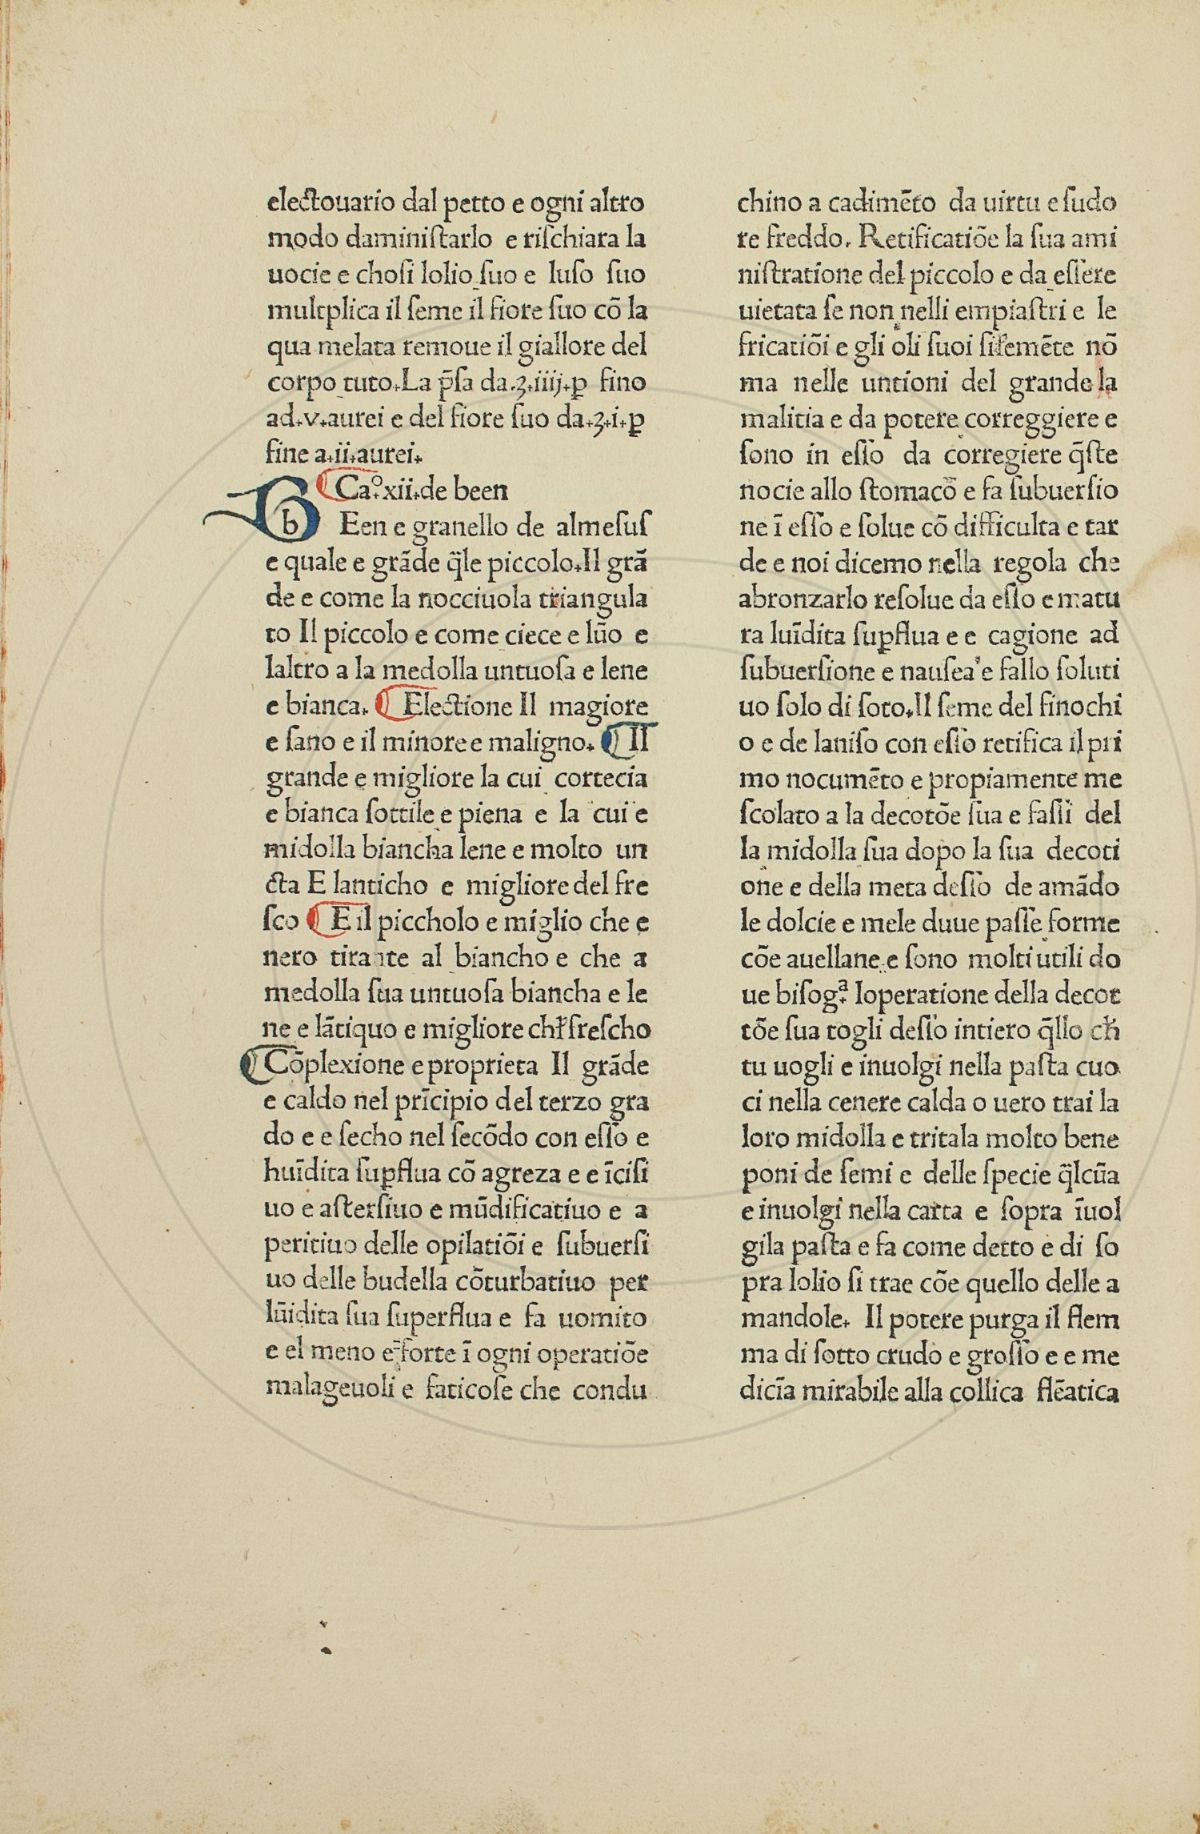 electouario dal petto e ogni altro
modo daminiſtarlo e riſchiara la
uocie e choſi lolio ſuo e luſo ſuo
multplica il ſeme il fiore ſuo cō la
qua melata remoue il giallore del
corpo tuto.La p̄ſa da.ʒ.iiij.ꝑ fino
ad.v.aurei e del fiore ſuo da.ʒ.i.ꝑ
fine a.ii.aurei.
Ca°.xii.de been
b Een e granello de almeſuſ
e quale e grāde q̄le piccolo.Il grā
de e come la nocciuola triangula
to Il piccolo e come ciece e lūo e
laltro a la medolla untuoſa e lene
e bianca. Electione Il magiore
e ſano e il minore e maligno. Il
grande e migliore la cui cortecia
e bianca ſottile e piena e la cui e
midolla biancha lene e molto un
cta E lanticho e migliore del fre
ſco E il piccholo e miglio che e
nero tirante al biancho e che a
medolla ſua untuoſa biancha e le
ne e lātiquo e migliore chł freſcho
Cōplexione e proprieta Il grāde
e caldo nel prīcipio del terzo gra
do e e ſecho nel ſecōdo con eſſo e
huīdita ſuꝑflua cō agreza e e īciſi
uo e aſterſiuo e mūdificatiuo e a
peritiuo delle opilatiōi e ſubuerſi
uo delle budella cōturbatiuo per
lūidita ſua ſuperflua e fa uomito
e el meno e forte ī ogni operatiōe
malageuoli e faticoſe che condu
chino a cadimēto da uirtu e ſudo
re freddo. Retificatiōe la ſua ami
niſtratione del piccolo e da eſſere
uietata ſe non nelli empiaſtri e le
fricatiōi e gli oli ſuoi ſiſemēte nō
ma nelle untioni del grande la
malitia e da potere correggiere e
ſono in eſſo da corregiere q̄ſte
nocie allo ſtomaco e fa ſubuerſio
ne ī eſſo e ſolue cō difficulta e tar
de e noi dicemo nella regola che
abronzarlo reſolue da eſſo e matu
ra luīdita ſuꝑflua e e cagione ad
ſubuerſione e nauſea e fallo ſoluti
uo ſolo di ſoto.Il ſeme del finochi
o e de laniſo con eſſo retifica il pri
mo nocumēto e propiamente me
ſcolato a la decotōe ſua e faſſi del
la midolla ſua dopo la ſua decoti
one e della meta deſſo de amādo
le dolcie e mele duue paſſe forme
cōe auellane e ſono molti utili do
ue biſogᵃ. loperatione della decot
tōe ſua togli deſſo intiero q̄llo cħ
tu uogli e inuolgi nella paſta cuo
ci nella cenere calda o uero trai la
loro midolla e tritala molto bene
poni de ſemi e delle ſpecie q̄lcūa
e inuolgi nella carta e ſopra īuol
gila paſta e fa come detto e di ſo
pra lolio ſi trae cōe quello delle a
mandole. Il potere purga il flem
ma di ſotto crudo e groſſo e e me
dicīa mirabile alla collica flēatica